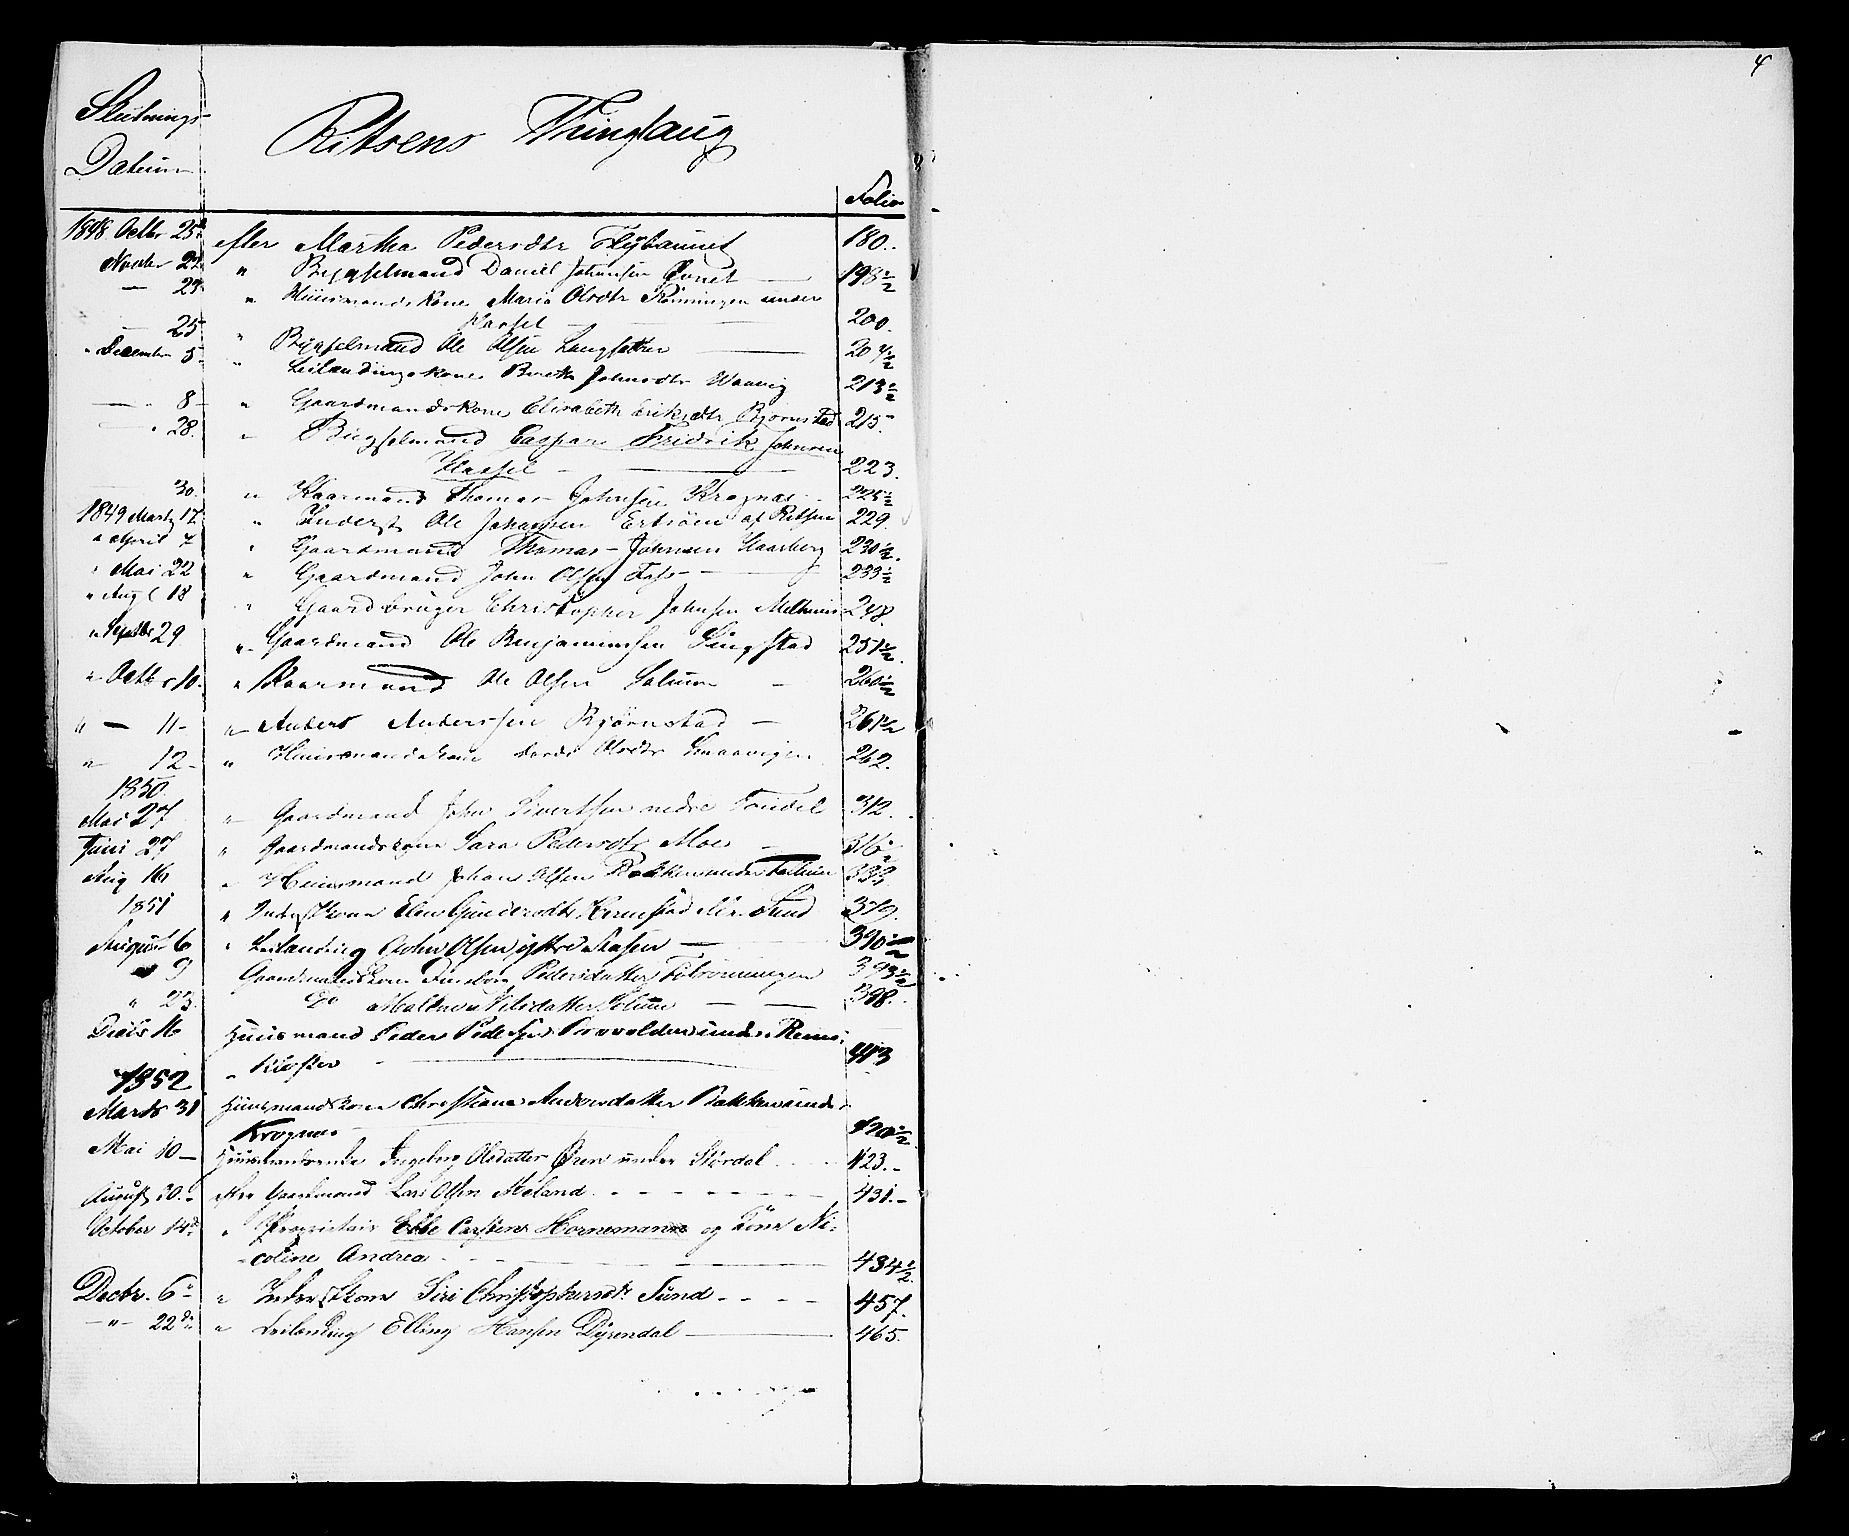 4
Slutnings-
Datum
Ritsens Thinglaug
Folio
1848 Octbr 25 efter Martha Pedersdtr 180.
Novbr 22 " Bygselmand Daniel Johansen 198½
— 23 " Huusmandskone Maria Olsdtr Rønningen under
Hassel — 200.
— 25 " Bygselmand Ole Olsen Langsæther — 204½
" December 5 " Leilændingskone Bereth Johnsdtr Waavig 213½
— " 8 — " Gaardmandskone Elisabeth Eriksdtr Bjørnstad 215.
— " 28. " Bygselmand Caspar Fridrik Johnsen
Hassel — 223.
— 30. " Kaarmand Thomas Johnsen Krognæs 225½
1849 Marts 17. " Inderst Ole Johansen af Ritsen 229.
" April 7 " Gaardmand Thomas Johnsen Haarberg 230½
" Mai 22 " Gaardmand John Olsen 233½
" Aug 18 " Gaardbruger Christopher Johnsen Melhuus 248.
" Septbr 29 " Gaardmand Ole Benjaminsen Singstad 251½
" Octbr 10. " Kaarmand Ole Olsen Solum — 260½
" — 11 — " Anders Anderssen Bjørnstad — 261½
" 12 — " Huusmandskone Olsdtr Smaavigen 262.
1850.
Mai 27 " Gaardmand John Sivertsen nedre 312.
Juni 27 " Gaardmandskone Sara Pedersdtr Moe — 316½
Aug 16 " Huusmand Johan Olsen Bakken under 333
1851 " Inderstkone Elen Gundersdtr Sund 379.
August 6 " Leilænding John Olsen ystre — 390½
" 9 Gaardmandskone Pedersdatter 393½
" 23. " Do Nilsdatter Solum — 398.
Decbr 16 Huusmand Peder Pedersen under Reins
" Kloster — 413
1852
Marts 31 Huusmandskone Christiane Andersdatter Bakken under
Krognæs — 420½
Mai 10 — Huusmandsenke Ingeborg Olsdatter Øien under Størdal 423.
August 30. — efter Gaardmand Lars Olsen Aaland. 431. —
October 14d " Proprietair Ebbe Carstens Hornemann og Kone Ni-
coline Andrea — 434½
Decbr. 6 " Inderstkone Siri Christophersdtr Sund 457.
— " — 22de " Leilænding Elling Hansen Dyrendal — 465.